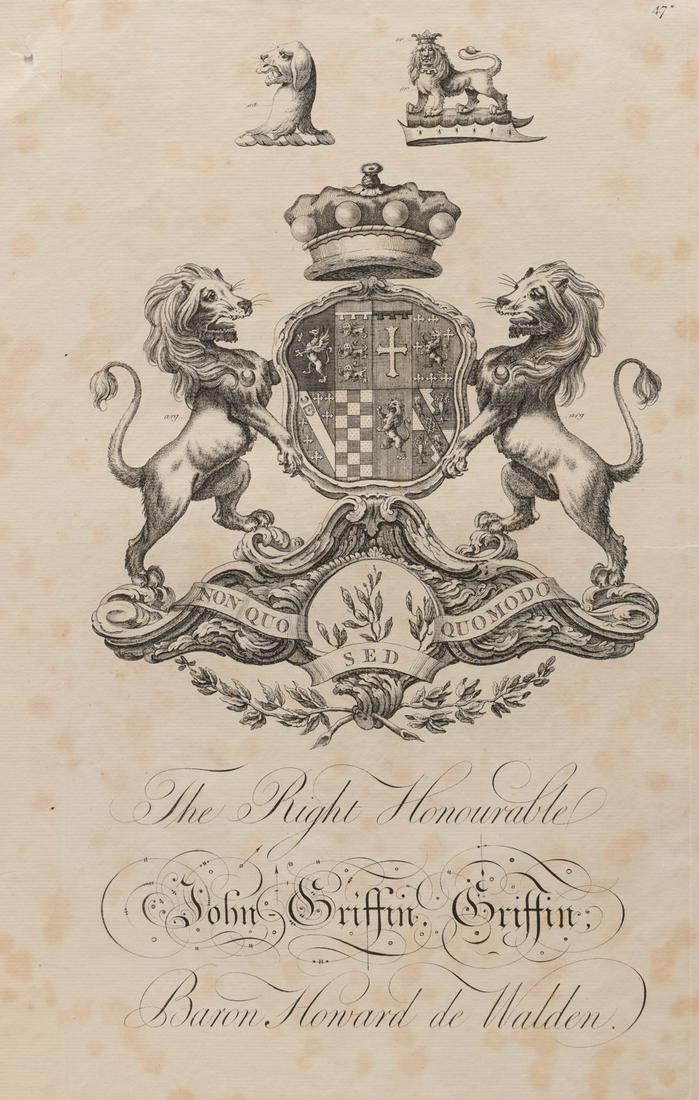 47
NON QUO
SED
QUOMODO
arg
arg
The Right Honourable
John Griffin, Griffin;
Baron Howard de Walden.